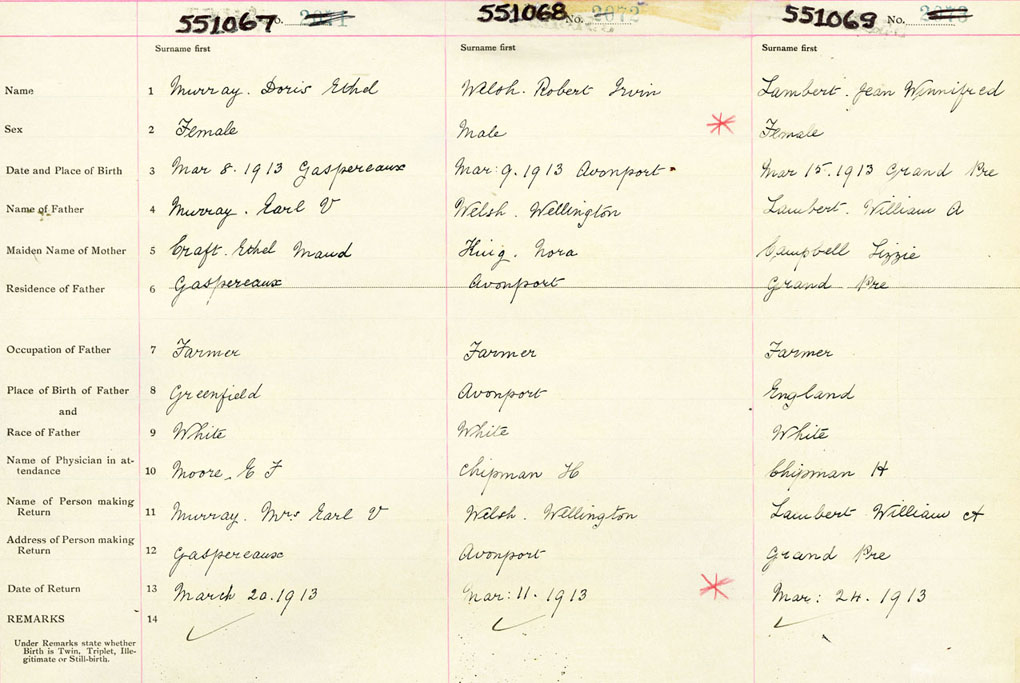 551067 No. 2071 551068 No. 2072 551069 No. 2073
Surname first Surname first Surname first
Name 1 Murray. Doris Ethel Welsh. Robert Irvin Lambert. Jean Winnifred
Sex 2 Female Male Female
Date and Place of Birth 3 Mar 8. 1913 Gaspereaux Mar: 9. 1913 Avonport Mar 15. 1913 Grand Pre
Name of Father 4 Murray. Earl V Welsh. Wellington Lambert. William A
Maiden Name of Mother 5 Craft. Ethel Maud Nora Campbell Lizzie
Residence of Father 6 Gaspereaux Avonport Grand Pre
Occupation of Father 7 Farmer Farmer Farmer
Place of Birth of Father 8 Greenfield Avonport England
and
Race of Father 9 White White White
Name of Physician in at-
tendance 10 Moore. E F Chipman H Chipman H
Name of Person making
Return 11 Murray. Mrs Earl V Welsh. Wellington Lambert William A
Address of Person making
Return 12 Gaspereaux Avonport Grand Pre
Date of Return 13 March 20. 1913 Mar: 11. 1913 Mar: 24. 1913
REMARKS 14
Under Remarks state whether
Birth is Twin, Triplet, Ille-
gitimate or Still-birth.